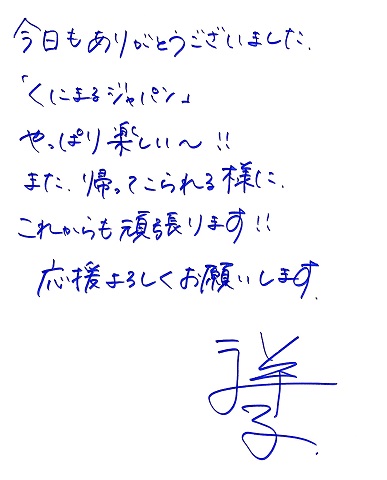 今日もありがとうございました.
「くにまるジャパン」
やっぱり楽しい〜!!
また.帰ってこられる様に.
これからも頑張ります!!
応援よろしくお願いします.